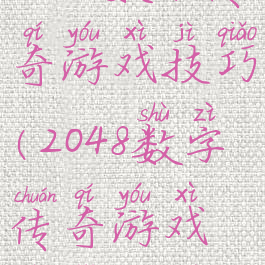 qí yóu xì jì qiǎo
奇游戏技巧
shù zì
(2048数字
chuán qí yóu xì
传奇游戏